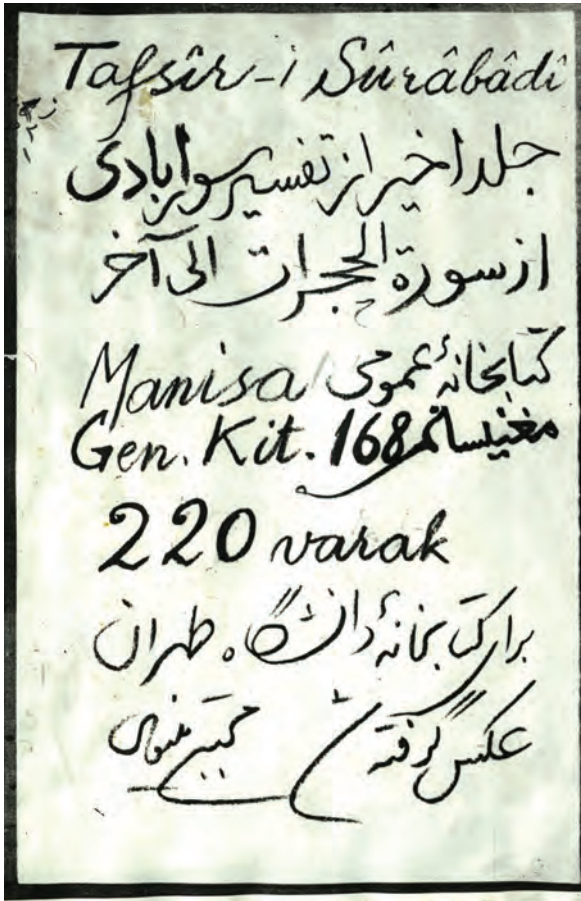 Tafsîr-i Sûrâbâdî
جلد اخیر از تفسیر سورابادی
از سورة الحجرات الی آخر
Manisa کتابخانهٔ عمومی
Gen. Kit. 168 مغنیسا نمره
220 varak
برای کتابخانهٔ دانشگاه طهران
عکس گرفته شد مجتبی مینوی